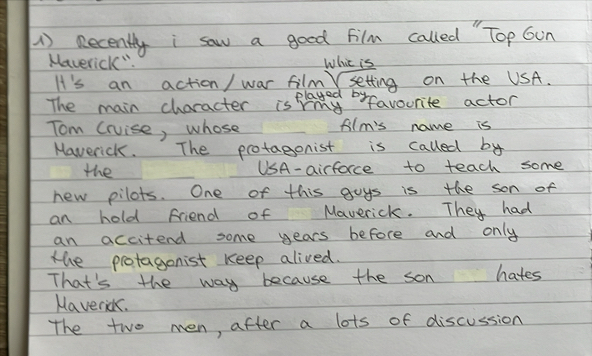 1) Recently i saw a good film called "Top Gun
Maverick".
It's an action/war film whic is setting on the USA.
The main character is played by my favourite actor
Tom Cruise, whose film's name is
Maverick. The protagonist is called by
the USA-airforce to teach some
new pilots. One of this guys is the son of
an hold friend of Maverick. They had
an accitend some years before and only
the protagonist keep alived.
That's the way because the son hates
Maverick.
The two men, after a lots of discussion